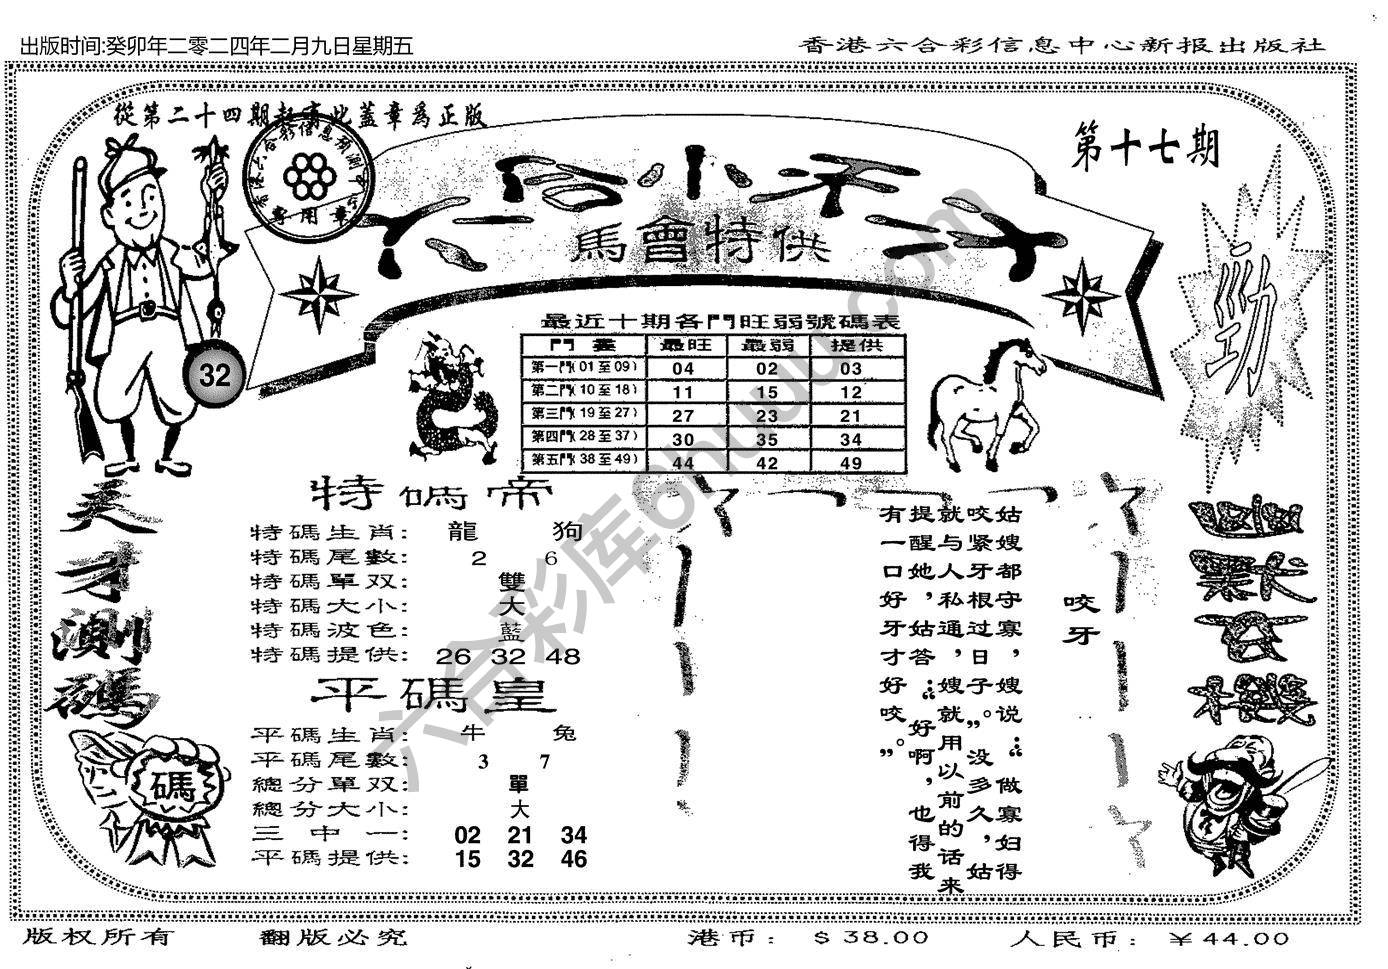 出版时间:癸卯年二零二四年二月九日星期五
香港六合彩信息中心新报出版社
從第二十四期起寄此蓋章爲正版
第十七期
馬會特供
勁
32
最近十期各門旺弱號碼表
門 最旺 最弱 提供
第一門(01至09) 04 02 03
第二門(10至18) 11 15 12
第三門(19至27) 27 23 21
第四門(28至37) 30 35 34
第五門(38至49) 44 42 49
天才測碼
碼
特碼帝
特碼生肖: 龍 狗
特碼尾數: 2 6
特碼單双: 雙
特碼大小: 大
特碼波色: 藍
特碼提供: 26 32 48
平碼皇
平碼生肖: 牛 兔
平碼尾數: 3 7
總分單双: 單
總分大小: 大
三中一: 02 21 34
平碼提供: 15 32 46
咬牙
姑嫂都守寡，嫂说：“做寡妇得
咬紧牙根过日子”。没多久，姑
就与人私通，嫂就用以前的话来
提醒她，姑答：“好啊，也得我
有一口好牙才好咬”。
六合彩库6huu.com
版权所有
翻版必究
港币: $38.00
人民币: ￥44.00